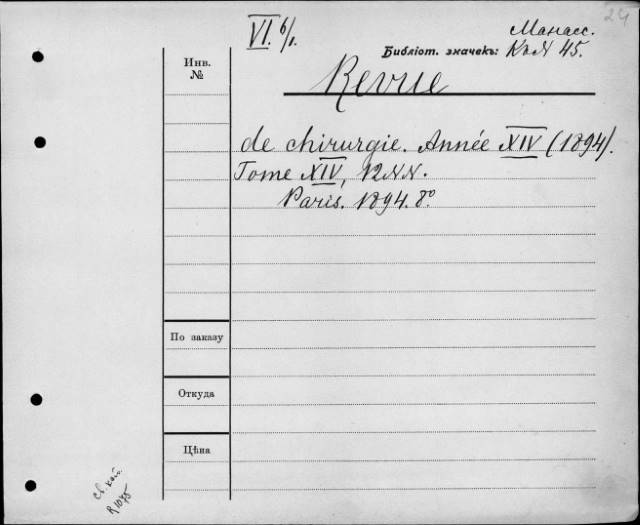 24
VI. б/1.
Манасс.
Библіот. значекъ: К. N 45.
Инв.
№
Revue
de chirurgie. Année XIV (1894).
Tome XIV, 12 N.N.
Paris. 1894. 8º.
По заказу
Откуда
Цѣна
R 1075